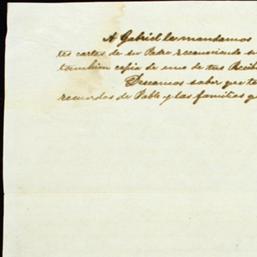 A Gabriel le mandamos
tes cartas de su Padre reconociendo su
tambien copia de uno de tus Recib
Deseamos saber que te
recuerdos de Pablo y las familias q